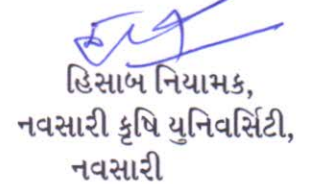 હિસાબ નિયામક,
નવસારી કૃષિ યુનિવર્સિટી,
નવસારી